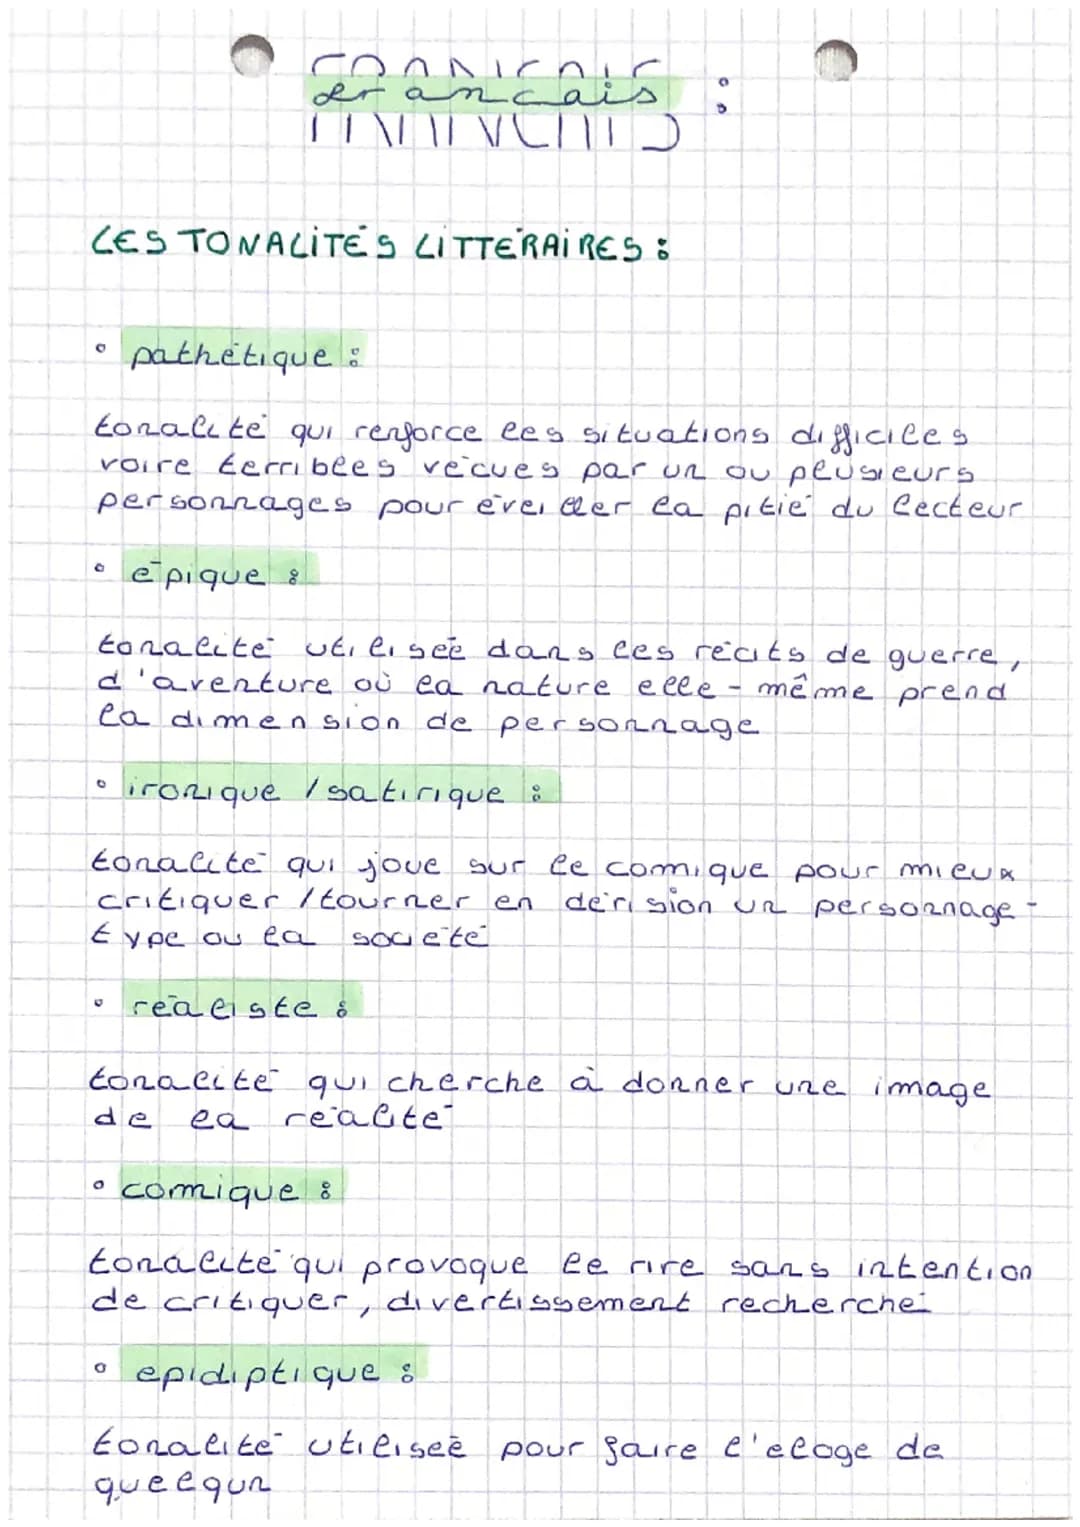 français :
LES TONALITÉS LITTÉRAIRES :
• pathétique :
tonalité qui renforce les situations difficiles
voire terribles vécues par un ou plusieurs
personnages pour éveiller la pitié du lecteur
• épique :
tonalité utilisée dans les récits de guerre,
d'aventure où la nature elle-même prend
la dimension de personnage
• ironique / satirique :
tonalité qui joue sur le comique pour mieux
critiquer / tourner en dérision un personnage-
type ou la société
• réaliste :
tonalité qui cherche à donner une image
de la réalité
• comique :
tonalité qui provoque le rire sans intention
de critiquer, divertissement recherché
• epidiptique :
tonalité utilisée pour faire l'eloge de
quelqun